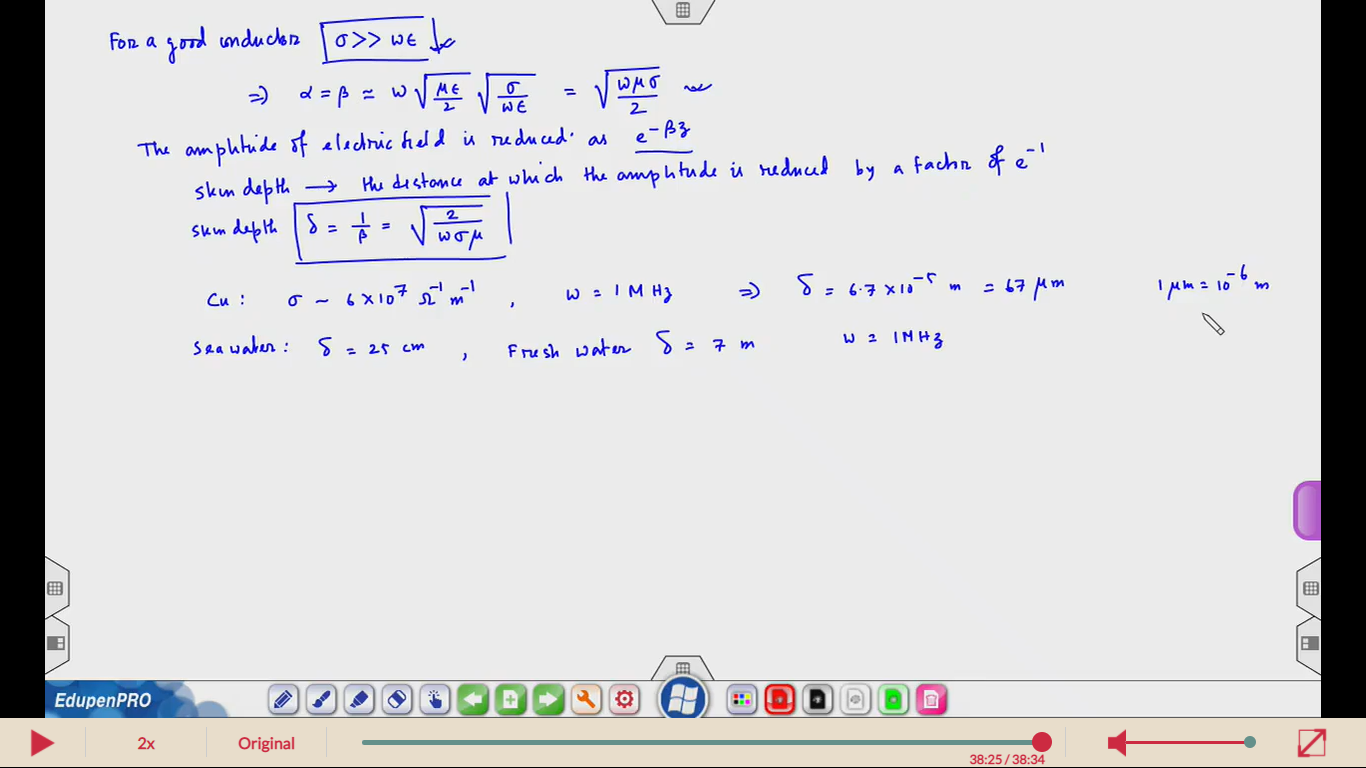 For a good conductor σ >> ωϵ
⇒ α = β ≃ ω √(μϵ/2) √(σ/ωϵ) = √(ωμσ/2)
The amplitude of electric field is reduced as e^{-βz}
skin depth → the distance at which the amplitude is reduced by a factor of e^{-1}
skin depth δ = 1/β = √(2/ωσμ)
Cu : σ ~ 6×10^7 Ω^{-1} m^{-1} , ω = 1 MHz ⇒ δ = 6.7 × 10^{-5} m = 67 μm 1 μm = 10^{-6} m
Sea water : δ = 25 cm , Fresh water δ = 7 m ω = 1MHz
EdupenPRO
2x Original 38:25 / 38:34